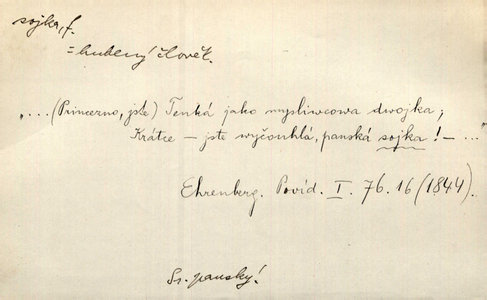 sojka, f.
= hubený člověk.
"... (Princerno, jste) Tenká jako mysliwcowa dwojka;
Krátce – jste wyčouhlá, panská sojka! – ..."
Ehrenberg. Povíd. I. 76. 16 (1844).
Sr. panský!